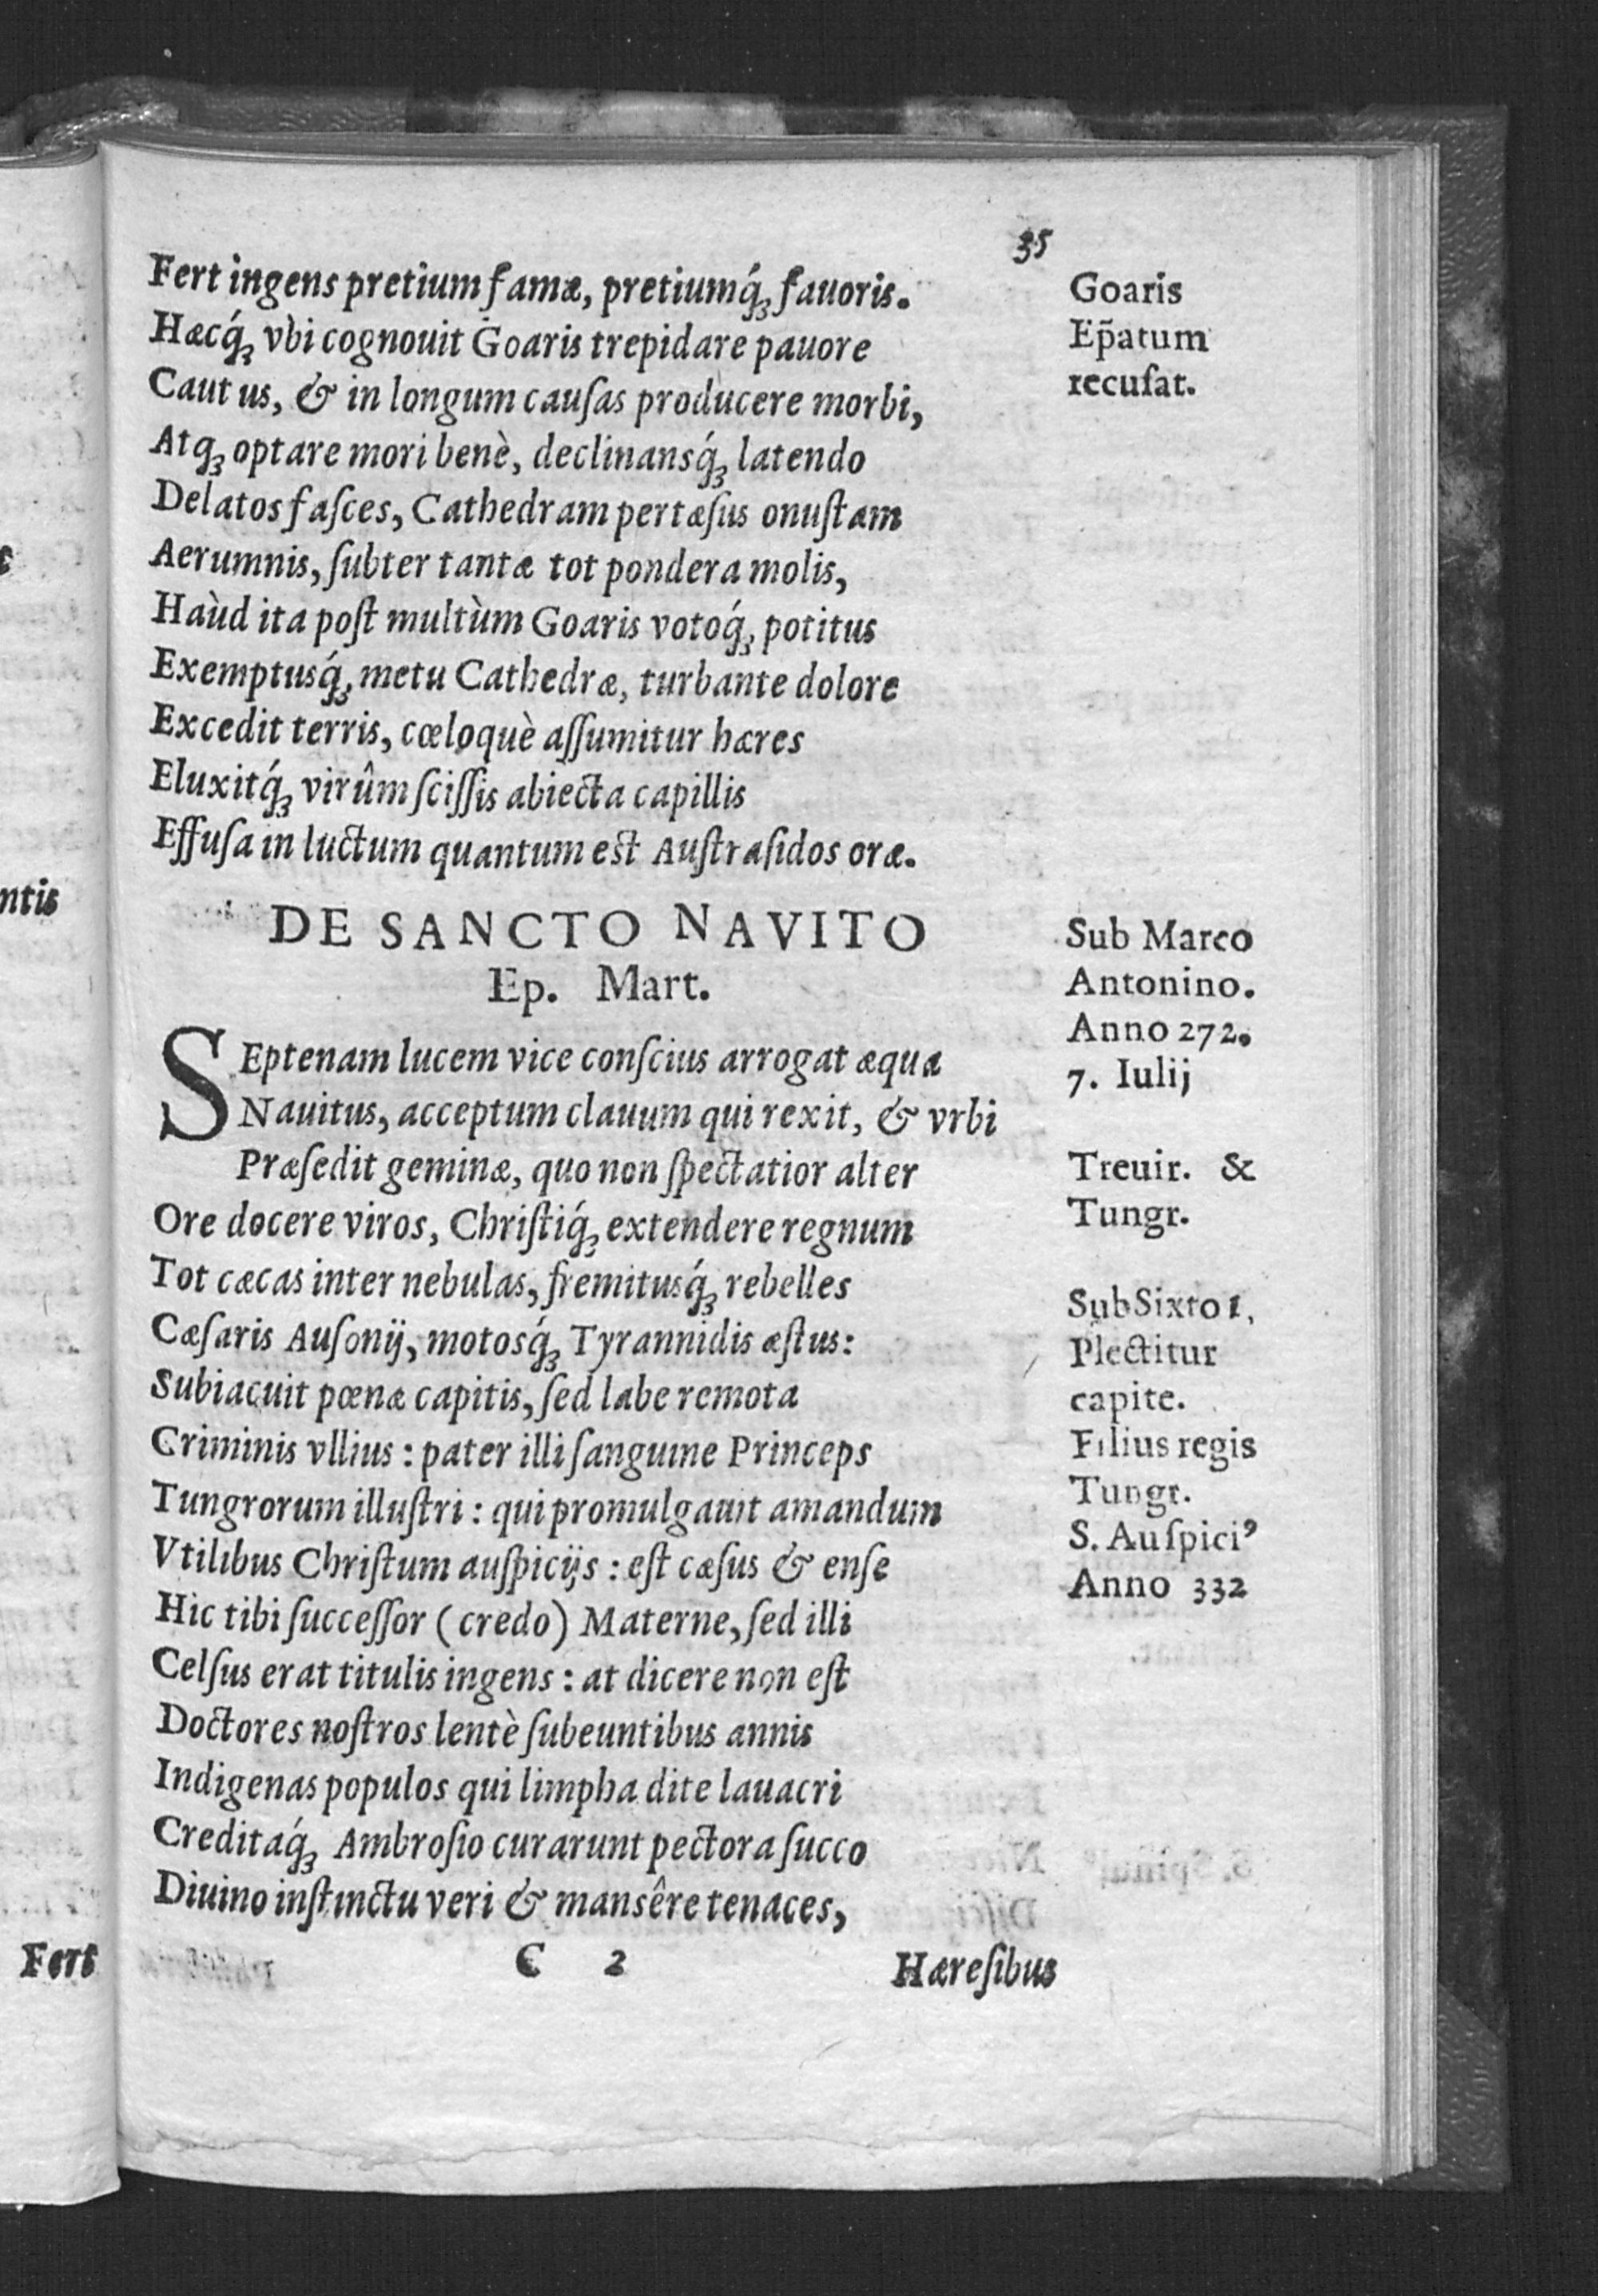 35
Fert ingens pretium famæ, pretiumq́ꝫ fauoris.
Hæcq́ꝫ vbi cognouit Goaris trepidare pauore
Cautus, & in longum cauſas producere morbi,
Atqꝫ optare mori benè, declinansq́ꝫ latendo
Delatos faſces, Cathedram pertæſus onuſtam
Aerumnis, ſubter tantæ tot pondera molis,
Haùd ita poſt multùm Goaris votoq́ꝫ potitus
Exemptusq́ꝫ metu Cathedræ, turbante dolore
Excedit terris, cœloquè aſſumitur hæres
Eluxitq́ꝫ virûm ſciſſis abiecta capillis
Effuſa in luctum quantum est Auſtraſidos oræ.
Goaris
Ep̃atum
recuſat.
DE SANCTO NAVITO
Ep. Mart.
SEptenam lucem vice conſcius arrogat æqua
Nauitus, acceptum clauum qui rexit, & vrbi
Præſedit geminæ, quo non ſpectatior alter
Ore docere viros, Chriſtiq́ꝫ extendere regnum
Tot cæcas inter nebulas, fremitusq́ꝫ rebelles
Cæſaris Auſonij, motosq́ꝫ Tyrannidis æſtus:
Subiacuit pœnæ capitis, ſed labe remota
Criminis vllius: pater illi ſanguine Princeps
Tungrorum illuſtri: qui promulgauit amandum
Vtilibus Chriſtum auſpicijs: eſt cæſus & enſe
Hic tibi ſucceſſor (credo) Materne, ſed illi
Celſus erat titulis ingens: at dicere non eſt
Doctores noſtros lentè ſubeuntibus annis
Indigenas populos qui limpha dite lauacri
Creditaq́ꝫ Ambroſio curarunt pectora ſucco
Diuino inſtinctu veri & mansêre tenaces,
Sub Marco
Antonino.
Anno 272.
7. Iulij
Treuir. &
Tungr.
Sub Sixto 1,
Plectitur
capite.
Filius regis
Tungr.
S. Auſpiciꝰ
Anno 332
C 2
Hæreſibus
ntis
Fert